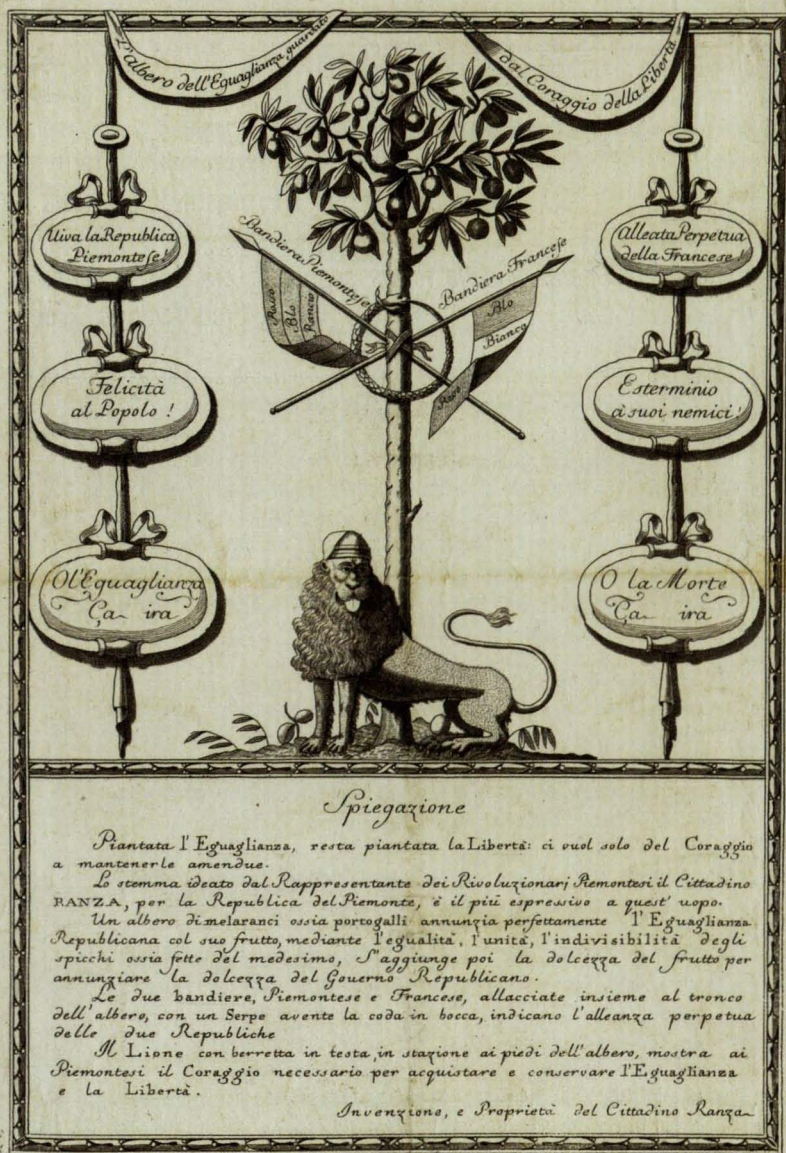 L'albero dell'Eguaglianza guardato
dal Coraggio della Libertà
Viva la Republica
Piemontese!
Alleata Perpetua
della Francese!
Bandiera Piemontese
Rosso
Blo
Rancio
Bandiera Francese
Blo
Bianco
Roso
Felicità
al Popolo!
Esterminio
a'suoi nemici!
O l'Eguaglianza
Ça ira
O la Morte
Ça ira
Spiegazione
Piantata l'Eguaglianza, resta piantata la Libertà: ci vuol solo del Coraggio
a mantenerle amendue.
Lo stemma ideato dal Rappresentante dei Rivoluzionarj Piemontesi il Cittadino
RANZA, per la Republica del Piemonte, è il più espressivo a quest' uopo.
Un albero di melaranci ossia portogalli annunzia perfettamente l'Eguaglianza
Republicana col suo frutto, mediante l'egualità, l'unità, l'indivisibilità degli
spicchi ossia fette del medesimo, S'aggiunge poi la dolcezza del frutto per
annunziare la dolcezza del Governo Republicano.
Le due bandiere, Piemontese e Francese, allacciate insieme al tronco
dell'albero, con un Serpe avente la coda in bocca, indicano l'alleanza perpetua
delle due Republiche
Il Lione con berretta in testa, in stazione ai piedi dell'albero, mostra ai
Piemontesi il Coraggio necessario per acquistare e conservare l'Eguaglianza
e la Libertà.
Invenzione, e Proprietà del Cittadino Ranza